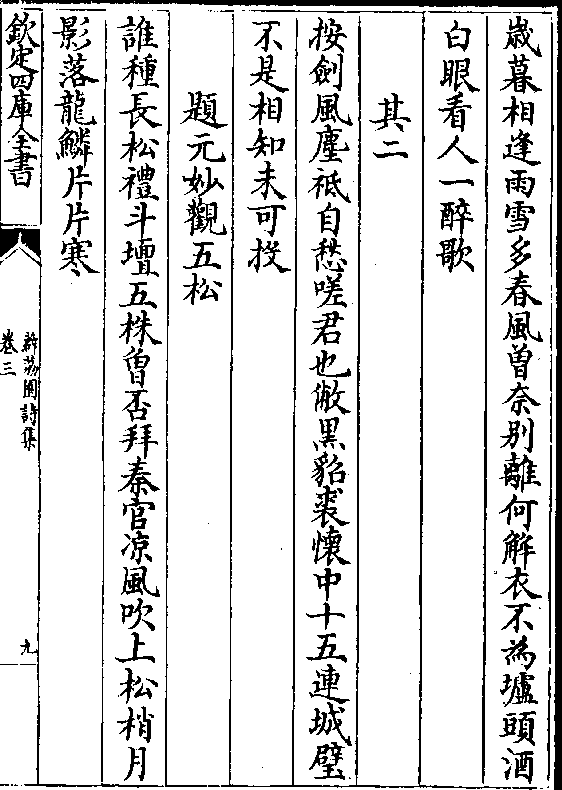 歲暮相逢雨雪多春風曾奈别離何解衣不為壚頭酒
白眼看人一醉歌
其二
按劍風塵祗自愁嗟君也敝黑貂裘懷中十五連城璧
不是相知未可投
題元妙觀五松
誰種長松禮斗壇五株曾否拜秦官凉風吹上松梢月
影落龍鱗片片寒
欽定四庫全書
卷三
九